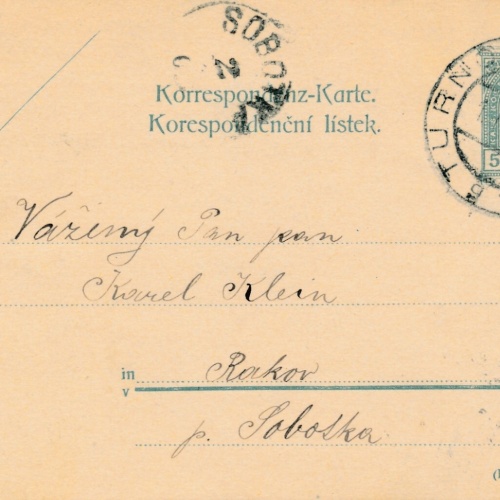 SOBOTKA
2
Korrespondenz-Karte.
Korespondenční lístek.
TURN
5
Vážený Pan pan
Karel Klein
in
v
Rakov
p. Sobotka